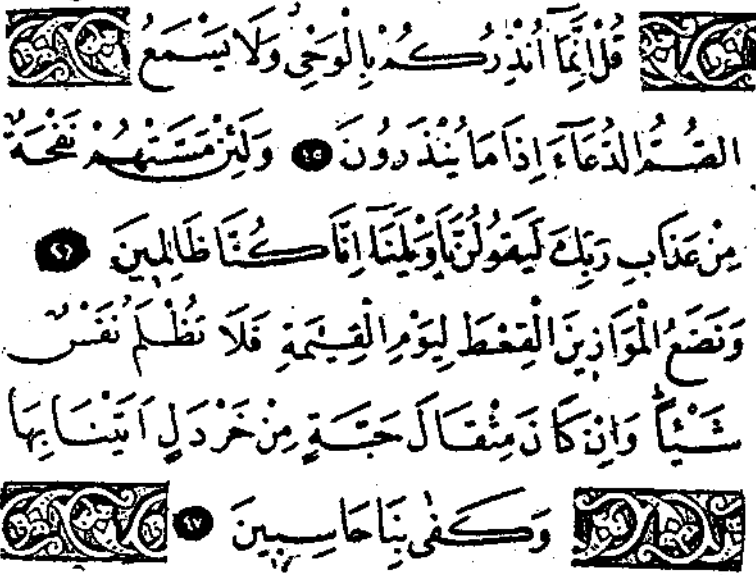 قُلْ اِنَّمَٓا اُنْذِرُكُمْ بِالْوَحْيِۘ وَلَا يَسْمَعُ
الصُّمُّ الدُّعَٓاءَ اِذَا مَا يُنْذَرُونَ ٤٥ وَلَئِنْ مَسَّتْهُمْ نَفْحَةٌ
مِنْ عَذَابِ رَبِّكَ لَيَقُولُنَّ يَاوَيْلَنَٓا اِنَّا كُنَّا ظَالِمِينَ ٤٦
وَنَضَعُ الْمَوَازِينَ الْقِسْطَ لِيَوْمِ الْقِيٰمَةِ فَلَا تُظْلَمُ نَفْسٌ
شَيْـًٔاۜ وَاِنْ كَانَ مِثْقَالَ حَبَّةٍ مِنْ خَرْدَلٍ اَتَيْنَا بِهَاۜ
وَكَفٰى بِنَا حَاسِبِينَ ٤٧